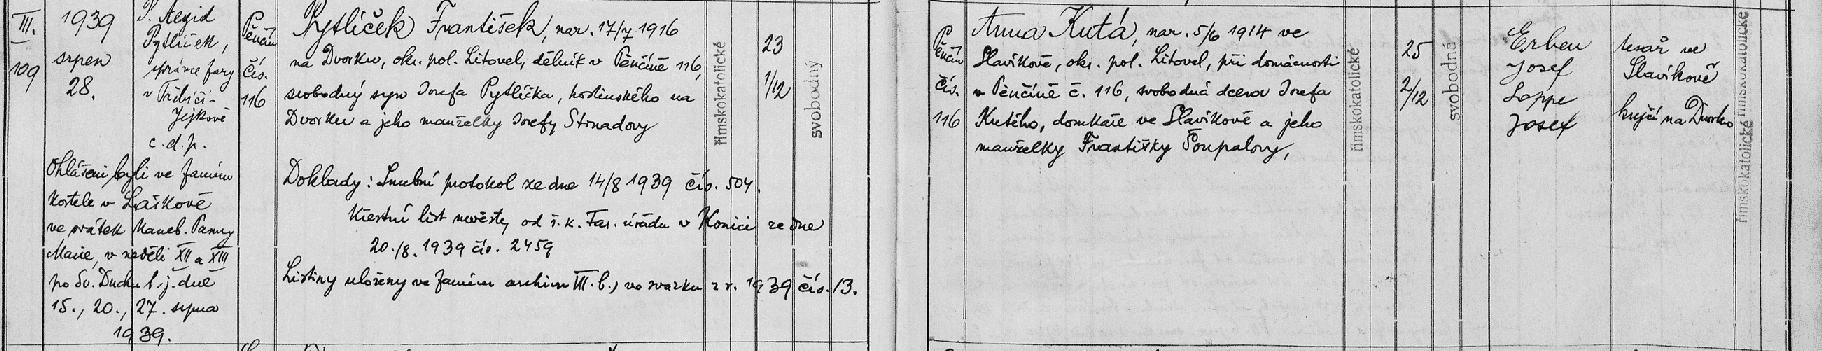 III.
109
1939
srpen
28.
P. Aegid
Pytlíček,
správce fary
v Třebčí-
c. d. p.
Pěnčín
čís.
116
Pytlíček František, nar. 17/7 1916
na Dvorku, okr. pol. Litovel, dělník v Pěnčíně 116,
svobodný syn Josefa Pytlíčka, hostinského na
Dvorku a jeho manželky Josefy Strnadovy
římskokatolické
23
1/12
svobodný
Ohlášeni byli ve farním
kostele v Laškově
ve svátek Naneb. Panny
Marie, v neděli XII a XIII
po Sv. Duchu t. j. dne
15., 20., 27. srpna
1939.
Doklady: Snubní protokol ze dne 14/8 1939 čís. 504.
Křestní list nevěsty od ř. k. Far. úřadu v Konici ze dne
20./8. 1939 čís. 2459
Listiny uloženy ve farním archivu III. b., ve svazku z r. 1939 čís. 13.
Pěnčín
čís.
116
Anna Kutá, nar. 5/6 1914 ve
Slavíkově, okr. pol. Litovel, při domácnosti
v Pěnčíně č. 116, svobodná dcera Josefa
Kutého, domkaře ve Slavíkově a jeho
manželky Františky Poupalovy,
římskokatolické
25
2/12
svobodná
Erben
Josef
Loppe
Josef
tesař ve
Slavíkově
krejčí na Dvorku
římskokatolické
římskokatolické